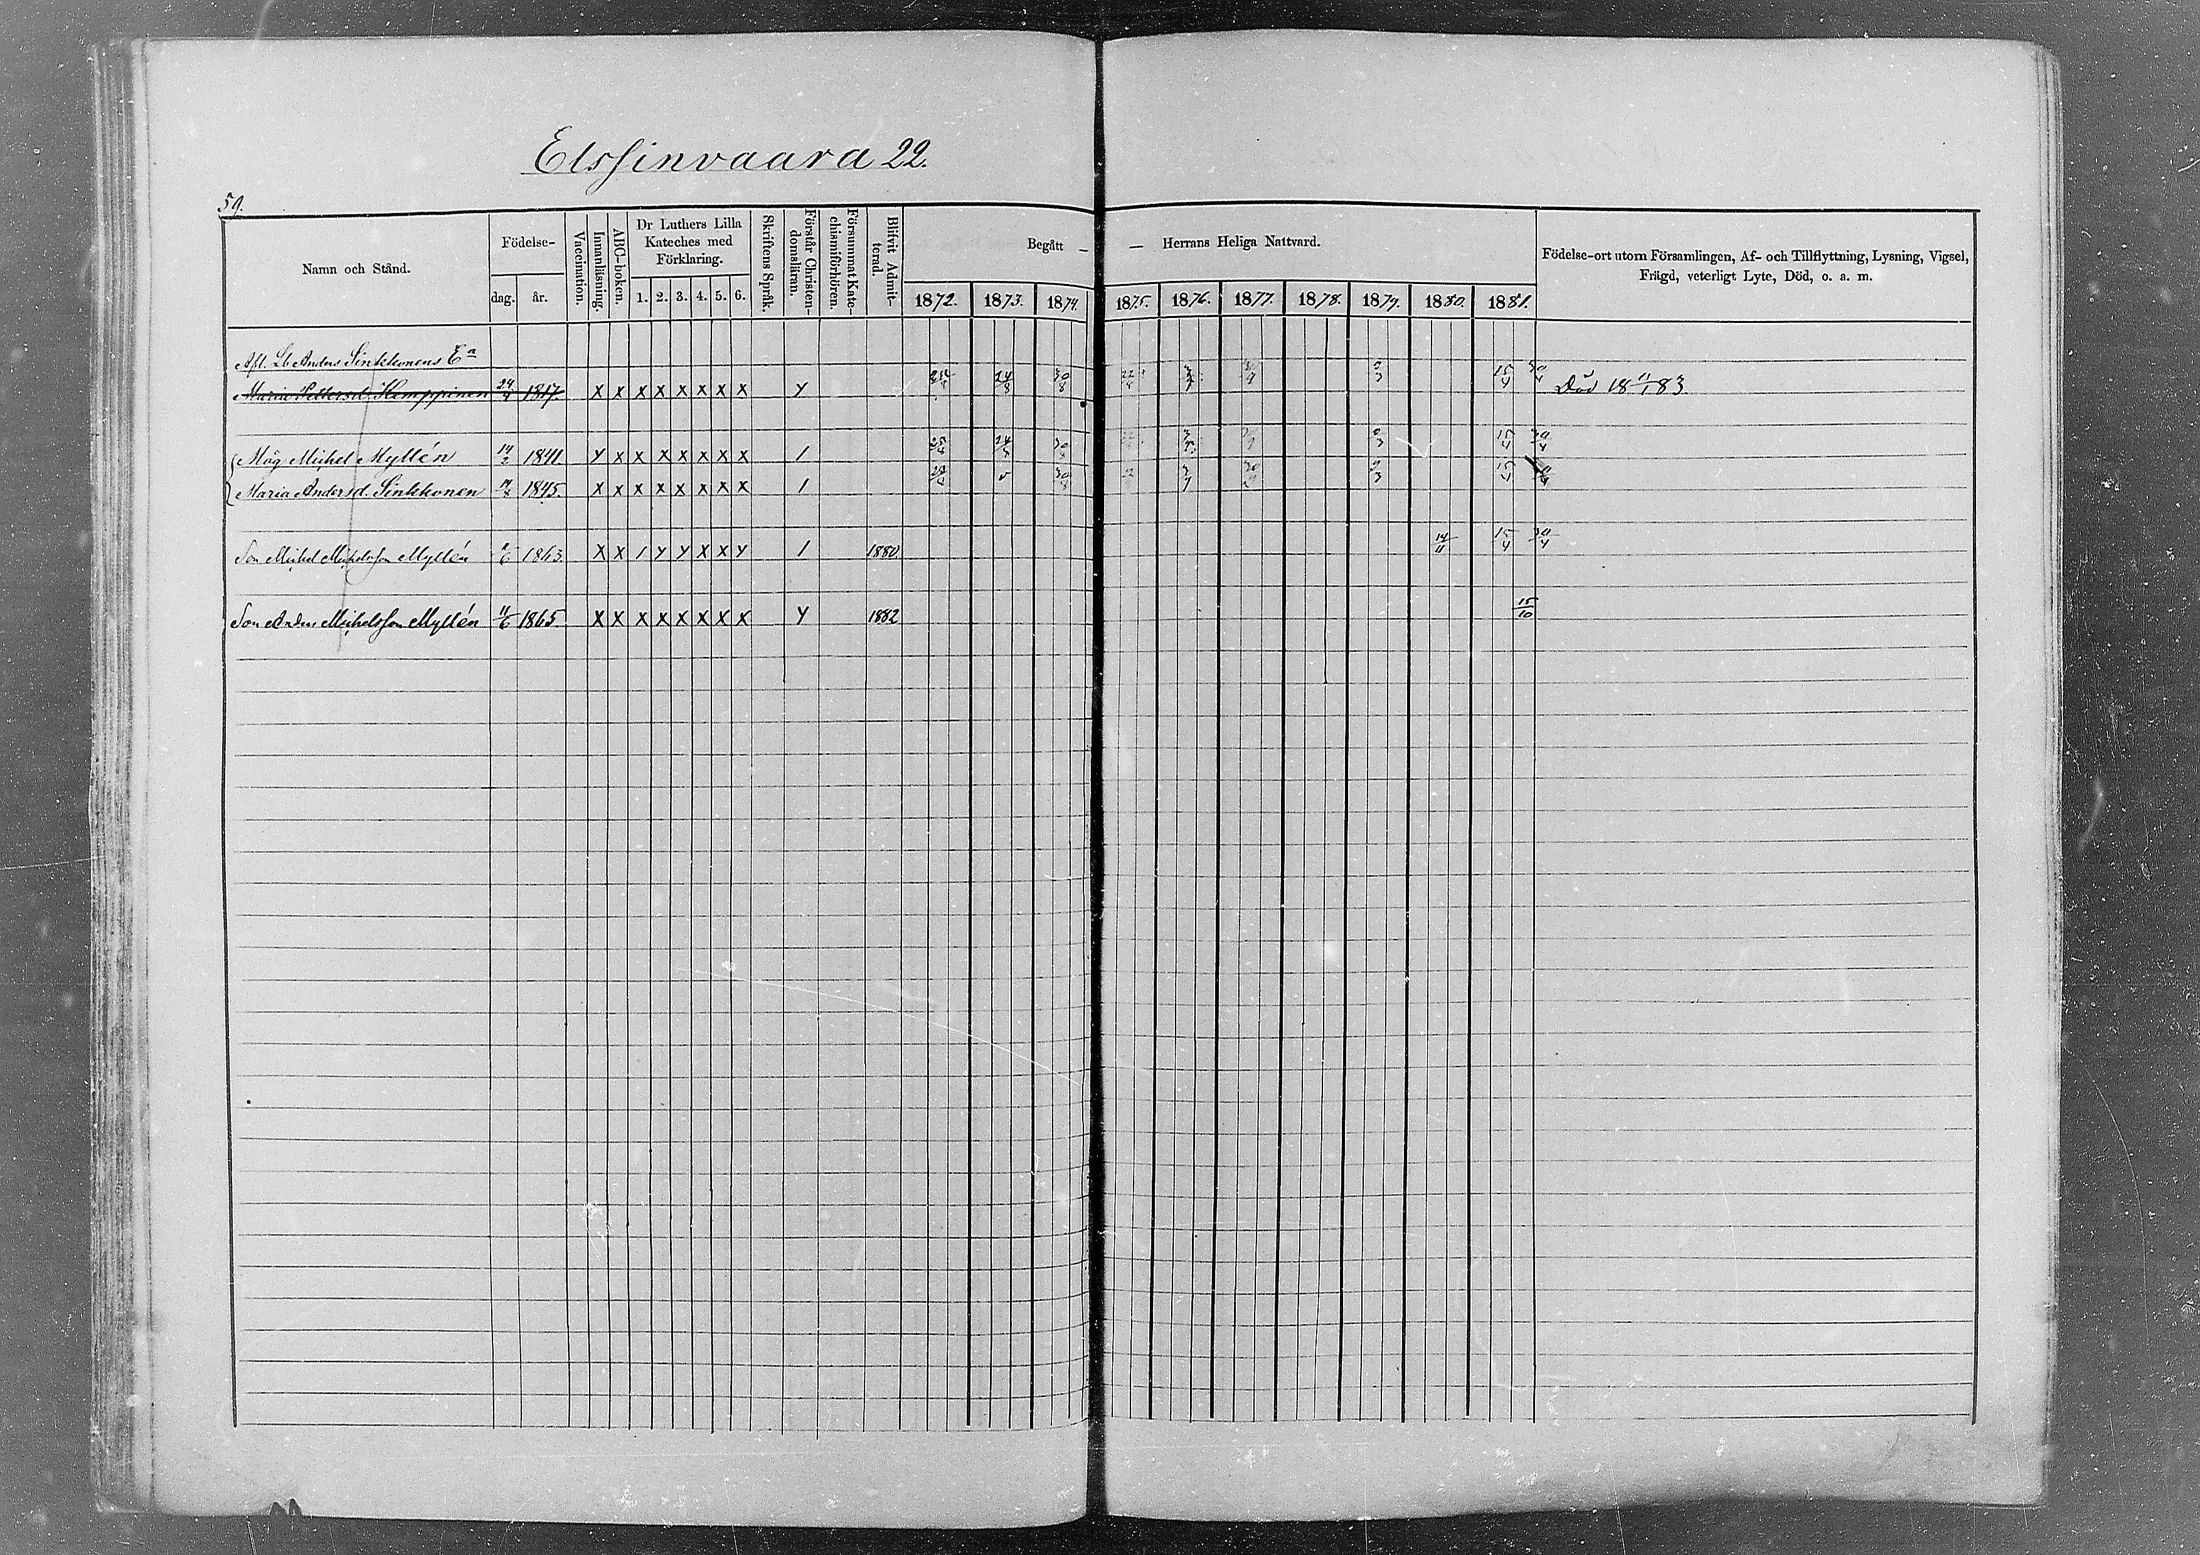 Elssinvaara 22.
59.
Namn och Stånd.
Födelse-
dag.
år.
Vaccination.
Innanläsning.
ABC-boken.
Dr Luthers Lilla
Kateches med
Förklaring.
1. 2. 3. 4. 5. 6.
Skriftens Språk.
Förstår Christen-
domsläran.
Försummat Kate-
chismiförhören.
Blifvit Admit-
terad.
Begått — — Herrans Heliga Nattvard.
1872. 1873. 1874. 1875. 1876. 1877. 1878. 1879. 1880. 1881.
Födelse-ort utom Församlingen, Af- och Tillflyttning, Lysning, Vigsel,
Frägd, veterligt Lyte, Död, o. a. m.
Afl. Lb Anders Sinkkonens Ea
Maria Pettersd. Kemppinen 24/4 1817 X X X X X X X X Y 24/8 30/8 15/4 30/4 Död 18 11/1 83.
Måg Michel Myllén 14/2 1841. Y X X X X X X X 1 25/4 24/8 30/8 15/4 30/4
Maria Andersd. Sinkkonen 1845. X X X X X X X X 1 30/8 15/4
Son Michel Michelsson Myllén 1863. X X 1 Y Y X X Y 1 1880 14/11 15/4 30/4
Son Anders Michelsson Myllén 11/6 1865. X X X X X X X X Y 1882 15/10